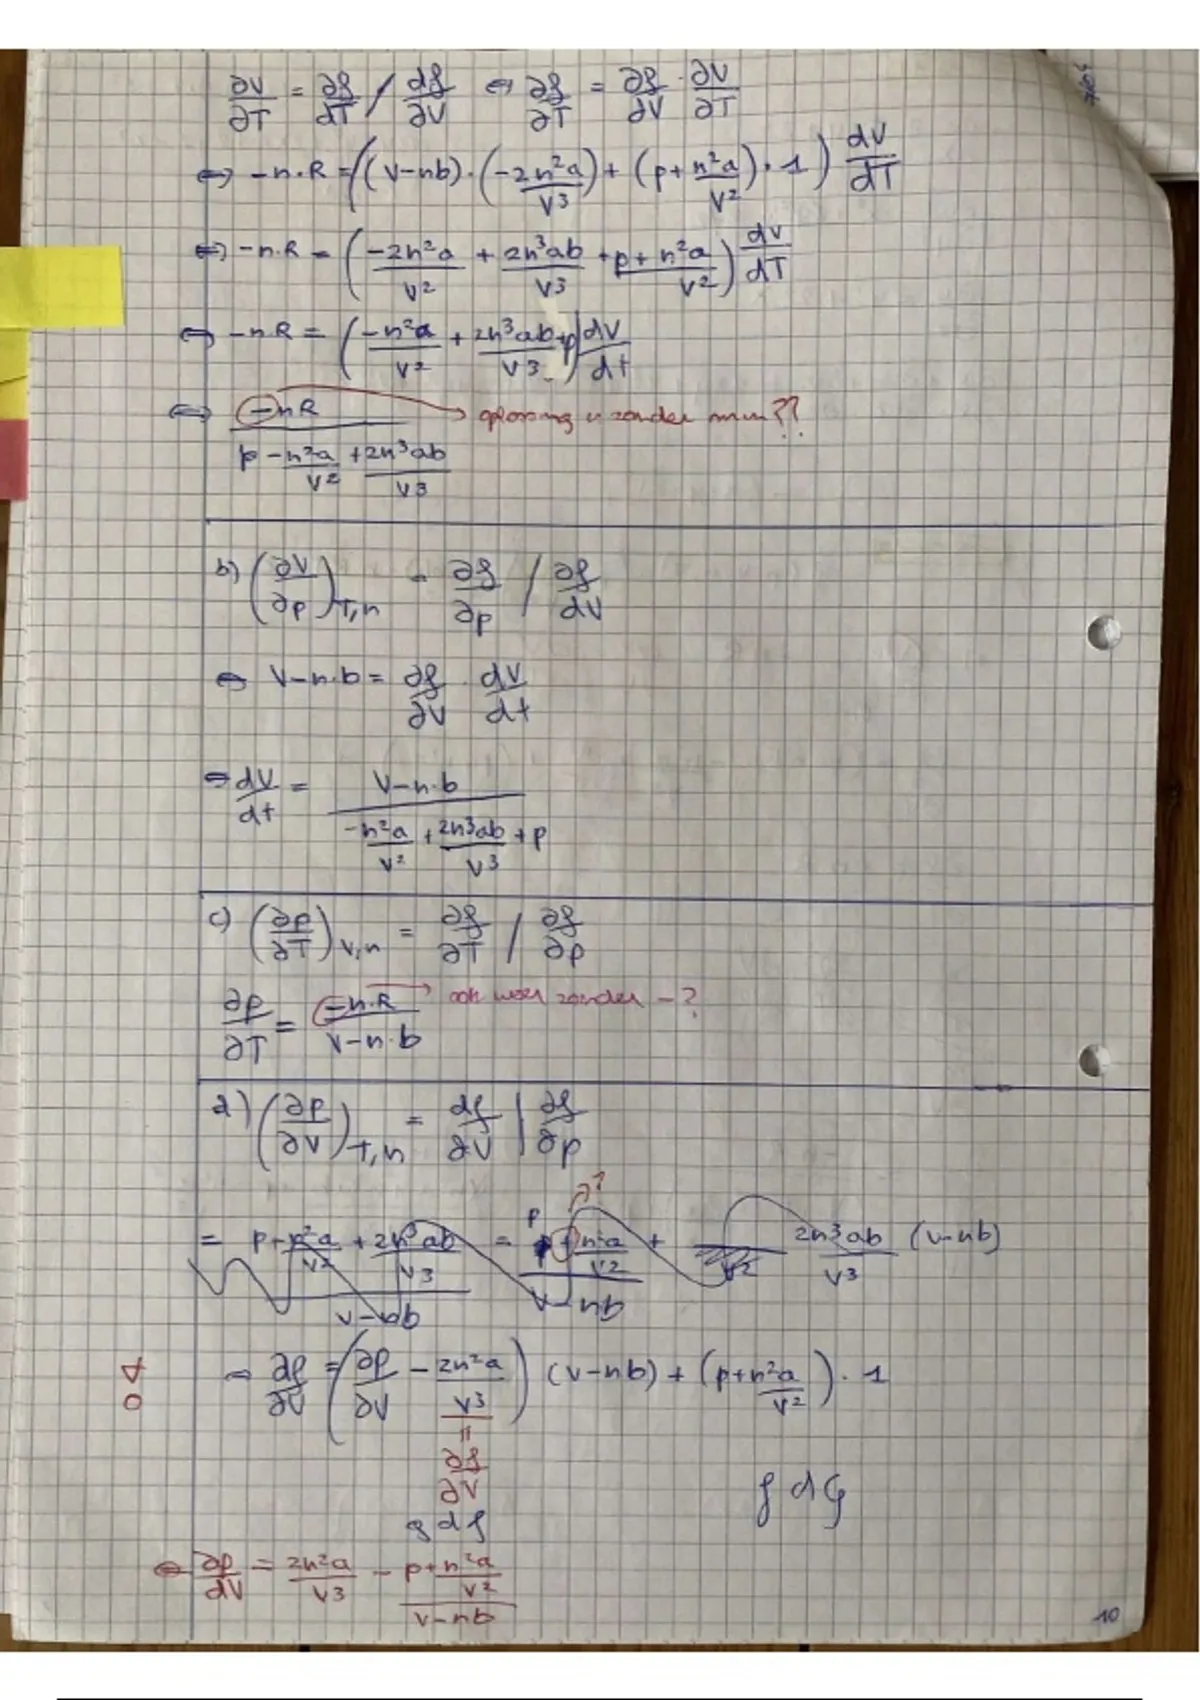 ∂V/∂T = ∂f/∂T / df/∂V ⇔ ∂f/∂T = ∂f/∂V · ∂V/∂T
⇔ -n·R = ((V-nb)·(-2n²a/V³) + (p+n²a/V²)·1) dV/dT
⇔ -n.R = (-2n²a/V² + 2n³ab/V³ + p + n²a/V²) dV/dT
⇔ -n.R = (-n²a/V² + 2n³ab/V³ + p) dV/dt
⇔ -nR / (p - n²a/V² + 2n³ab/V³) → oplossing is zonder min??
b) (∂V/∂p)T,n = ∂f/∂p / ∂f/dV
⇔ V-n.b = ∂f/∂V · dV/dt
⇔ dV/dt = V-n.b / (-n²a/V² + 2n³ab/V³ + p)
c) (∂p/∂T)V,n = ∂f/∂T / ∂f/∂p
∂p/∂T = -n.R / V-n.b → ook weer zonder - ?
d) (∂p/∂V)T,n = df/∂V | ∂f/∂p
2n³ab/V³ (V-nb)
= ∂f/∂V = (∂p/∂V - 2n²a/V³) (V-nb) + (p+n²a/V²)·1
=
∂f/∂V
g d f
f d G
⇔ ∂p/dV = 2n²a/V³ - (p+n²a/V²) / (V-nb)
10